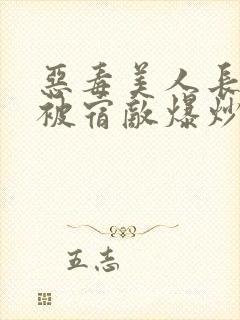 惡毒美人長
被宿敵爆炒
五志